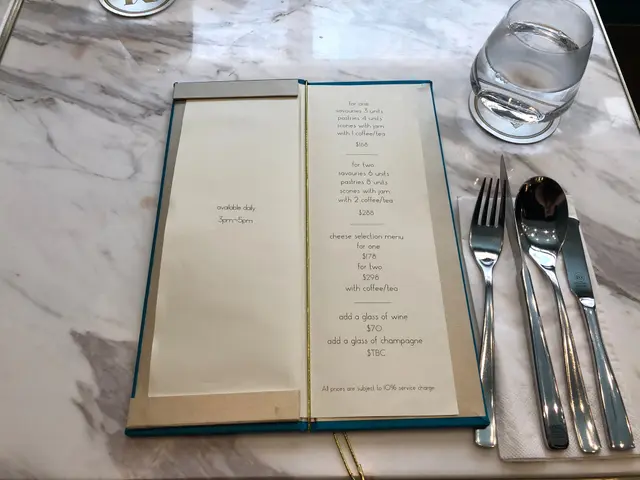 available daily
3pm~5pm
for one
savouries 3 units
pastries 4 units
scones with jam
with 1 coffee/tea
$168
for two
savouries 6 units
pastries 8 units
scones with jam
with 2 coffee/tea
$288
cheese selection menu
for one
$178
for two
$298
with coffee/tea
add a glass of wine
$70
add a glass of champagne
$TBC
All prices are subject to 10% service charge